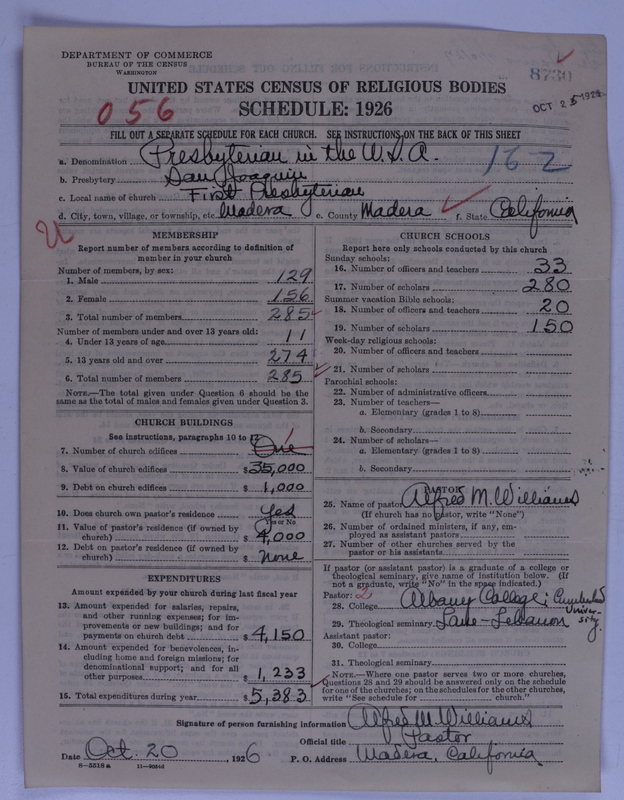 DEPARTMENT OF COMMERCE
BUREAU OF THE CENSUS
WASHINGTON
8730
OCT 25 1926
UNITED STATES CENSUS OF RELIGIOUS BODIES
056
SCHEDULE: 1926
FILL OUT A SEPARATE SCHEDULE FOR EACH CHURCH. SEE INSTRUCTIONS ON THE BACK OF THIS SHEET
a. Denomination Presbyterian in the U.S.A. 162
b. Presbytery San Joaquin
c. Local name of church First Presbyterian
d. City, town, village, or township, etc. Madera e. County Madera f. State California
U
MEMBERSHIP
Report number of members according to definition of member in your church
Number of members, by sex:
1. Male 129
2. Female 156
3. Total number of members 285
Number of members under and over 13 years old:
4. Under 13 years of age 11
5. 13 years old and over 274
6. Total number of members 285
NOTE.—The total given under Question 6 should be the
same as the total of males and females given under Question 3.
CHURCH BUILDINGS
See instructions, paragraphs 10 to 12
7. Number of church edifices One
8. Value of church edifices $35,000
9. Debt on church edifices $1,000
10. Does church own pastor's residence? Yes
Yes or No
11. Value of pastor's residence (if owned by
church) $4,000
12. Debt on pastor's residence (if owned by
church) $None
EXPENDITURES
Amount expended by your church during last fiscal year
13. Amount expended for salaries, repairs,
and other running expenses; for im-
provements or new buildings; and for
payments on church debt $4,150
14. Amount expended for benevolences, in-
cluding home and foreign missions; for
denominational support; and for all
other purposes $1,233
15. Total expenditures during year $5,383
CHURCH SCHOOLS
Report here only schools conducted by this church
Sunday schools:
16. Number of officers and teachers 33
17. Number of scholars 280
Summer vacation Bible schools:
18. Number of officers and teachers 20
19. Number of scholars 150
Week-day religious schools:
20. Number of officers and teachers
21. Number of scholars
Parochial schools:
22. Number of administrative officers
23. Number of teachers—
a. Elementary (grades 1 to 8)
b. Secondary
24. Number of scholars—
a. Elementary (grades 1 to 8)
b. Secondary
PASTOR
25. Name of pastor Alfred M. Williams
(If church has no pastor, write "None")
26. Number of ordained ministers, if any, em-
ployed as assistant pastors
27. Number of other churches served by the
pastor or his assistants
If pastor (or assistant pastor) is a graduate of a college or
theological seminary, give name of institution below. (If
not a graduate, write "No" in the space indicated.)
Pastor: 2
28. College Albany College; Cumberland University
29. Theological seminary Lane-Lebanon
Assistant pastor:
30. College
31. Theological seminary
NOTE.—Where one pastor serves two or more churches,
Questions 28 and 29 should be answered only on the schedule
for one of the churches; on the schedules for the other churches,
write "See schedule for church."
Signature of person furnishing information Alfred M. Williams
Official title Pastor
Date Oct. 20, 1926 P. O. Address Madera, California
8—5518 a